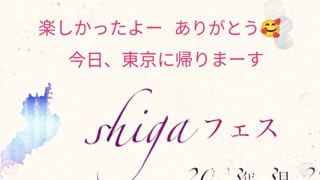 楽しかったよー ありがとう🥰
今日、東京に帰りまーす
shigaフェス